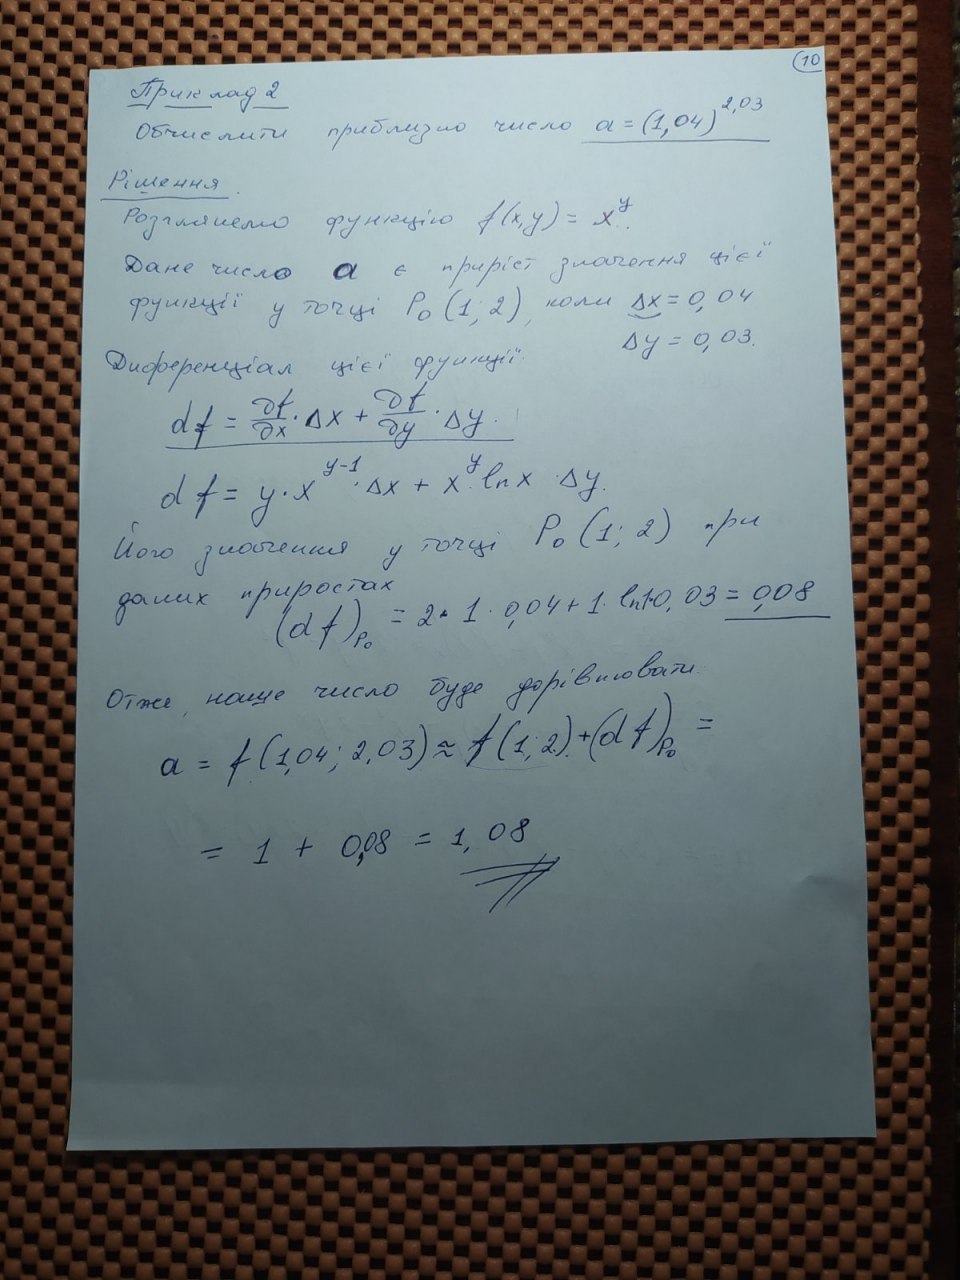 10
Приклад 2
Обчислити приблизно число a = (1,04)^2,03
Рішення.
Розглянемо функцію f(x,y) = x^y.
Дане число a є приріст значення цієї
функції у точці P₀(1; 2), коли Δx = 0,04
Δy = 0,03.
Диференціал цієї функції:
df = ∂f/∂x · Δx + ∂f/∂y · Δy.
df = y · x^(y-1) · Δx + x^y · ln x · Δy.
Його значення у точці P₀(1; 2) при
даних приростах
(df)P₀ = 2 · 1 · 0,04 + 1 · ln1 · 0,03 = 0,08
Отже, наше число буде дорівнювати:
a = f(1,04; 2,03) ≈ f(1; 2) + (df)P₀ =
= 1 + 0,08 = 1,08